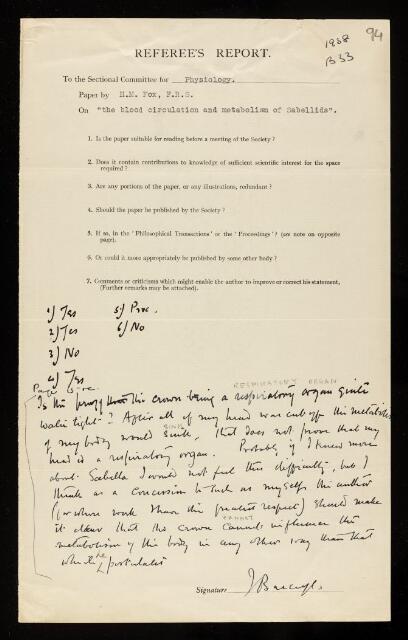 1938
B33
94
REFEREE'S REPORT.
To the Sectional Committee for Physiology.
Paper by H.M. Fox, F.R.S.
On "the blood circulation and metabolism of Sabellids".
1. Is the paper suitable for reading before a meeting of the Society?
2. Does it contain contributions to knowledge of sufficient scientific interest for the space
required?
3. Are any portions of the paper, or any illustrations, redundant?
4. Should the paper be published by the Society?
5. If so, in the 'Philosophical Transactions' or the 'Proceedings'? (see note on opposite
page).
6. Or could it more appropriately be published by some other body?
7. Comments or criticisms which might enable the author to improve or correct his statement,
(Further remarks may be attached).
1/ Yes 5/ Proc.
2/ Yes 6/ No
3/ No
4/ Yes
RESPIRATORY ORGAN
Is the proof the crown being a respiratory organ quite
water tight? After all if my head was cut off the metabolism
SINK
of my body would sink, that does not prove that my
head is a respiratory organ. Probably if I knew more
about Sabella I would not feel this difficulty, but I
think as a concession to such as myself the author
(for whose work I have the greatest respect) should make
CANNOT
it clear that the crown cannot influence the
metabolism of the body in any other way than that
which he postulates
Signature J Barcroft.